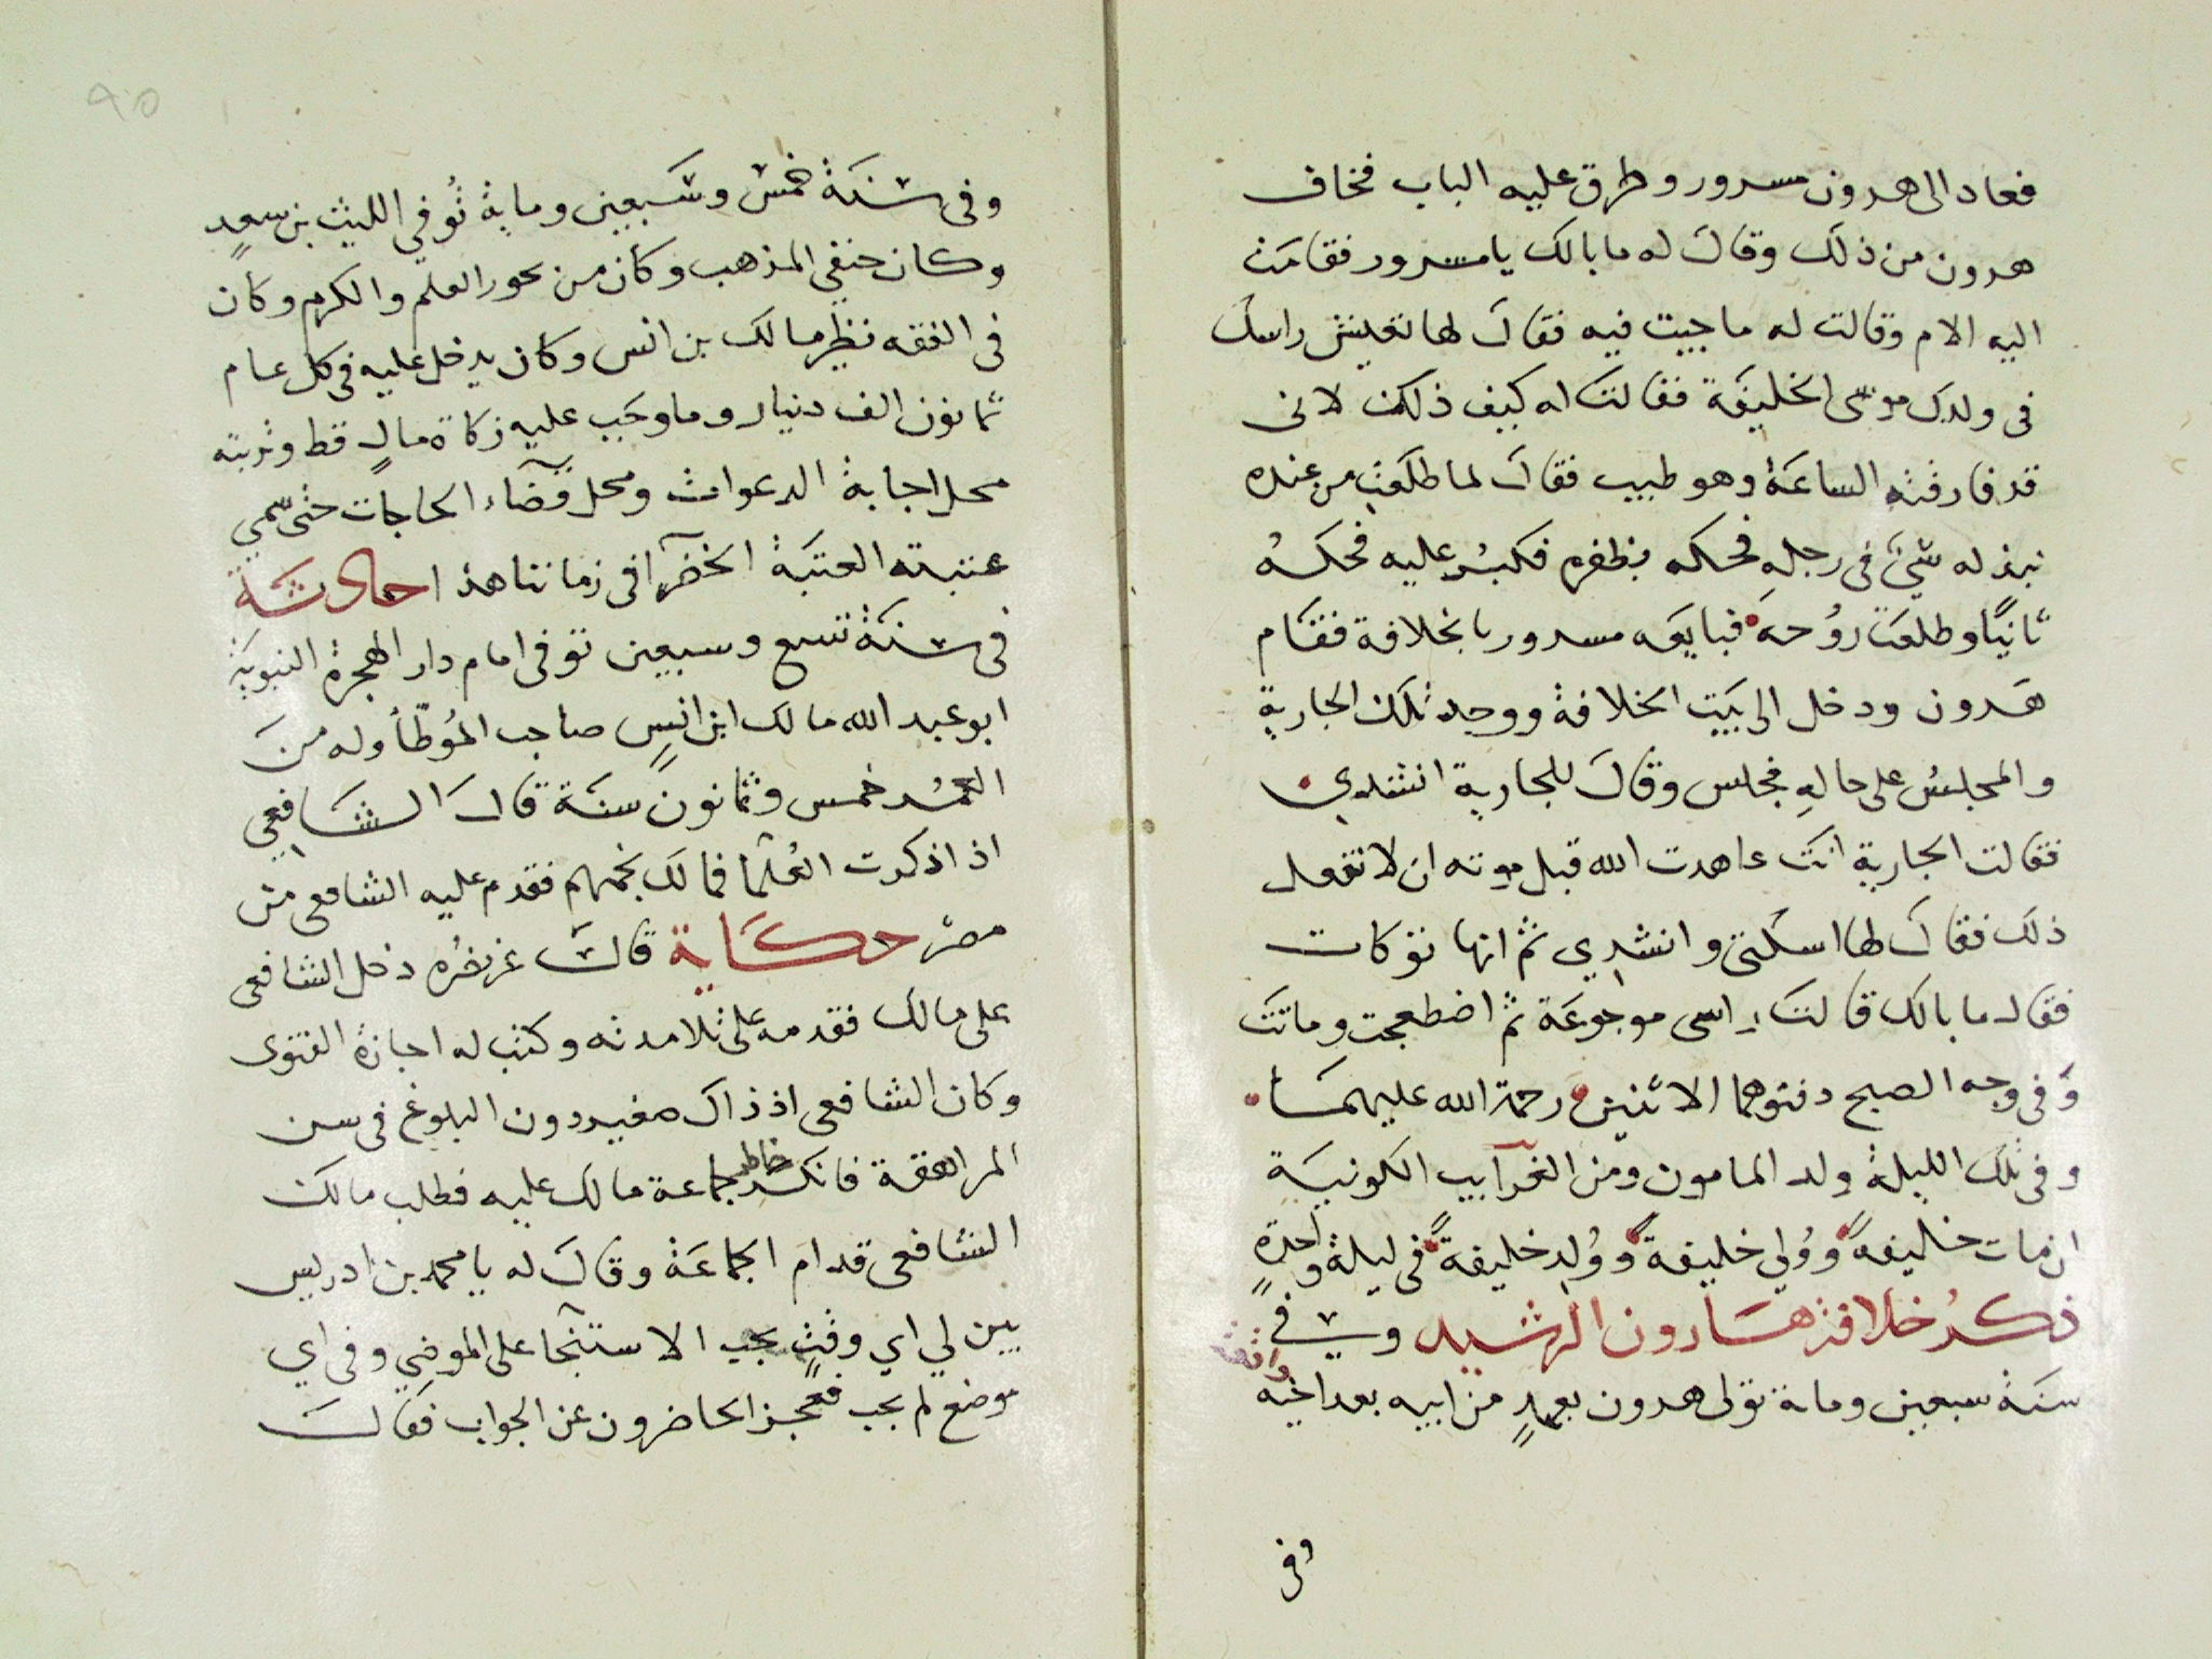 فعاد الى هرون مسرور وطرق عليه الباب فخاف
هرون من ذلك وقال له ما بالك يا مسرور فقامت
اليه الام وقالت له ما جيت فيه فقال لها تعيش راسك
فى ولدك موسى الخليفة فقالت له كيف ذلك لانى
قد فارقته الساعة وهو طيب فقال لما طلعت من عنده
نبذ له شئ فى رجله فحكه بظفره فكبر عليه فحكه
ثانيا وطلعت روحه فبايعه مسرور بالخلافة فقام
هرون ودخل الى بيت الخلافة ووجد تلك الجارية
والمجلس على حاله فجلس وقال للجارية انشدي
فقالت الجارية انك عاهدت الله قبل موته ان لا تفعل
ذلك فقال لها اسكتى وانشدي ثم انها توكات
فقال ما بالك قالت راسى موجوعة ثم اضطجعت وماتت
وفى وجه الصبح دفنوهما الاثنين رحمة الله عليهما
وفى تلك الليلة ولد المامون ومن الغرآيب الكونية
ان مات خليفة وولي خليفة وولد خليفة فى ليلة واحدة
ذكر خلافة هارون الرشيد وفي
واقعة
سنة سبعين وماة تولى هرون بعهد من ابيه بعد اخيه
وفى
٩٥
وفى سنة خمس وسبعين وماية توفي الليث بن سعد
وكان حنفي المذهب وكان من بحور العلم والكرم وكان
فى الفقه نظير مالك بن انس وكان يدخل عليه فى كل عام
ثمانون الف دينار وما وجب عليه زكاة مال قط وتربته
محل اجابة الدعوات ومحل قضآء الحاجات حتى سمي
عتبته العتبة الخضرآ فى زماننا هذا حادثة
فى سنة تسع وسبعين توفى امام دار الهجرة النبوية
ابو عبد الله مالك ابن انس صاحب الموطأ وله من
العمر خمس وثمانون سنة قال الشافعي
اذا ذكرت العلما فمالك نجمهم فقدم عليه الشافعى من
مصر حكاية قال غز نخره دخل الشافعى
على مالك فقدمه على تلامدته وكتب له اجازة الفتوى
وكان الشافعى اذ ذاك صغير دون البلوغ فى سن
المراهقة فانكسر خاطر جماعة مالك عليه فطلب مالك
الشافعى قدام الجماعة وقال له يا محمد بن ادريس
بين لي اي وقت يجب الاستنجا على الموضي وفى اي
موضع لم يجب فعجز الحاضرون عن الجواب فقال